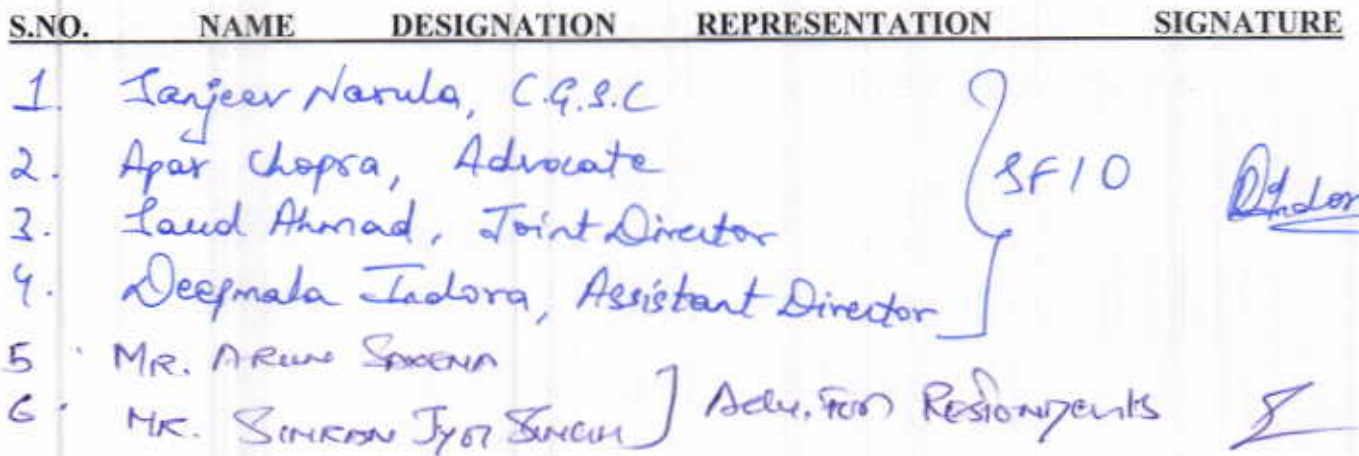 S.NO. NAME DESIGNATION REPRESENTATION SIGNATURE
1. Sanjeev Narula, C.G.S.C
2. Apar Chopra, Advocate
SFIO
3. Saud Ahmad, Joint Director
4. Deepmala Indora, Assistant Director
5. MR. ARUN SAXENA
6. MR. SIMRAN JYOT SINGH Adv. FOR Respondents